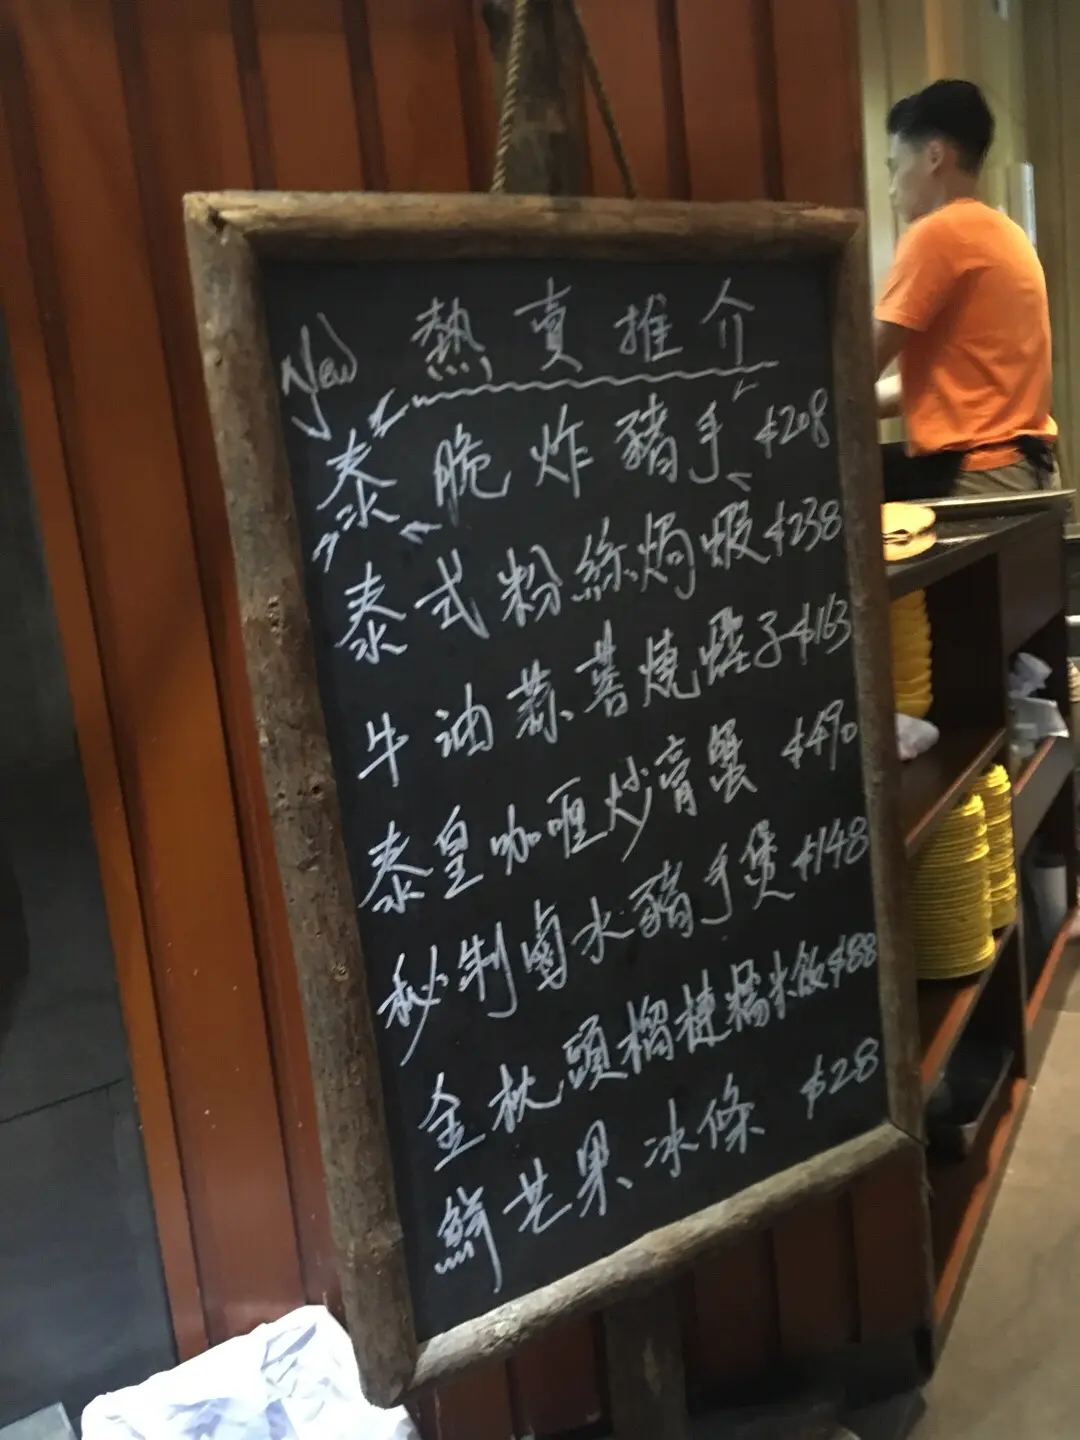 New 熱賣推介
泰脆炸豬手 $208
泰式粉絲焗蝦 $238
牛油蒜茸燒蟶子 $163
泰皇咖喱炒膏蟹 $490
秘制鹵水豬手煲 $148
金枕頭榴槤糯米飯 $88
鮮芒果冰條 $28